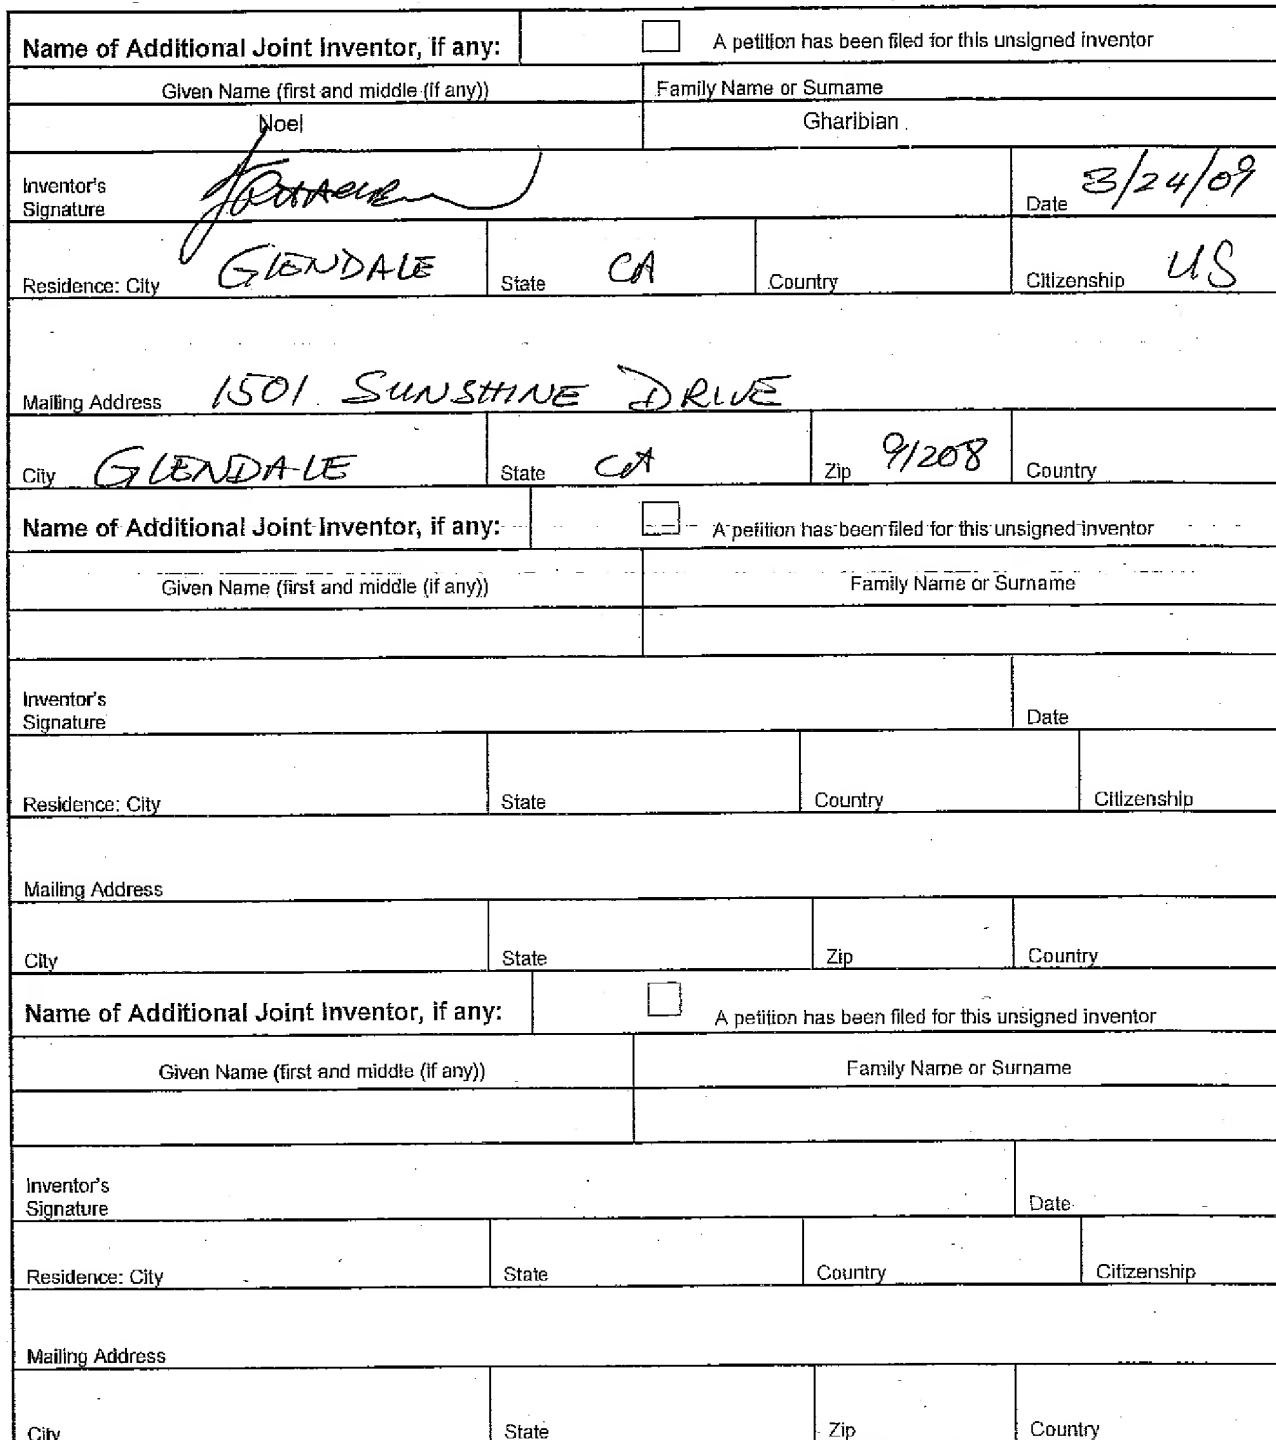 Name of Additional Joint Inventor, if any: A petition has been filed for this unsigned inventor
Given Name (first and middle (if any)) Family Name or Surname
Noel Gharibian
Inventor's
Signature Date 3/24/09
Residence: City GLENDALE State CA Country Citizenship US
Mailing Address 1501 SUNSHINE DRIVE
City GLENDALE State CA Zip 91208 Country
Name of Additional Joint Inventor, if any: A petition has been filed for this unsigned inventor
Given Name (first and middle (if any)) Family Name or Surname
Inventor's
Signature Date
Residence: City State Country Citizenship
Mailing Address
City State Zip Country
Name of Additional Joint Inventor, if any: A petition has been filed for this unsigned inventor
Given Name (first and middle (if any)) Family Name or Surname
Inventor's
Signature Date
Residence: City State Country Citizenship
Mailing Address
City State Zip Country